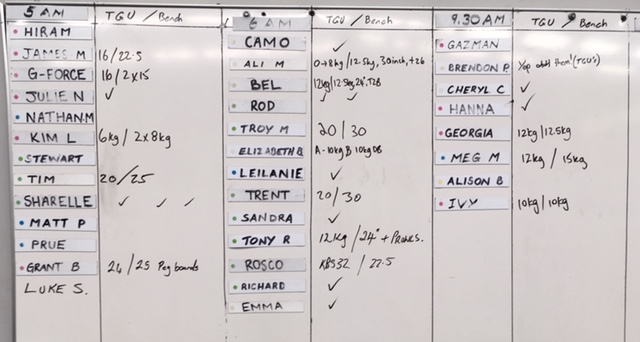 5 AM TGU / Bench
HIRAM
JAMES M 16/22.5
G-FORCE 16/2x15
JULIE N ✓
NATHANM
KIM L 6kg / 2x8kg
STEWART
TIM 20/25
SHARELLE ✓ ✓ ✓
MATT P
PRUE
GRANT B 24/25 Peg boards
LUKE S.
6 AM TGU / Bench
CAMO ✓
ALI M 0+8kg/12.5kg, 30inch, +26
BEL 12kg/12.5kg 24"
ROD ✓ ✓
TROY M 20/30
ELIZABETH B A-10kg B 10kg DB
LEILANIE ✓
TRENT 20/30
SANDRA ✓
TONY R 12kg /24" + Pranks.
ROSCO KBS32 / 22.5
RICHARD ✓
EMMA ✓
9.30AM TGU / Bench
GAZMAN
BRENDON P them! (TGU's)
CHERYL C ✓
HANNA ✓
GEORGIA 12kg/12.5kg
MEG M 12kg / 15kg
ALISON B
IVY 10kg/10kg